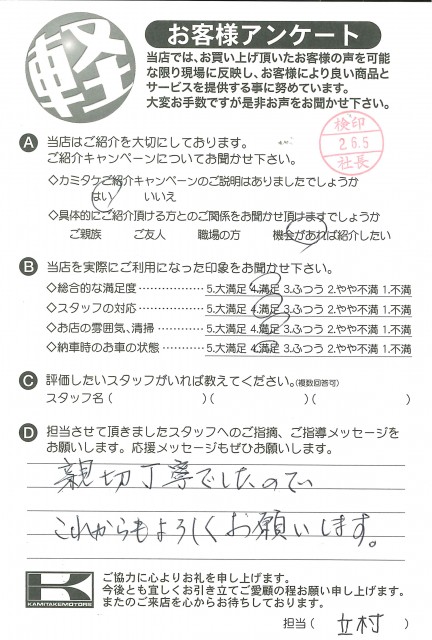 軽
お客様アンケート
当店では、お買い上げ頂いたお客様の声を可能
な限り現場に反映し、お客様により良い商品と
サービスを提供する事に努めています。
大変お手数ですが是非お声をお聞かせ下さい。
検印
2.6.5
社長
A 当店はご紹介を大切にしております。
ご紹介キャンペーンについてお聞かせ下さい。
◇カミタケご紹介キャンペーンのご説明はありましたでしょうか
はい いいえ
◇具体的にご紹介頂ける方とのご関係をお聞かせ頂けますでしょうか
ご親族 ご友人 職場の方 機会があれば紹介したい
B 当店を実際にご利用になった印象をお聞かせ下さい。
◇総合的な満足度 ……………… 5.大満足 4.満足 3.ふつう 2.やや不満 1.不満
◇スタッフの対応 ……………… 5.大満足 4.満足 3.ふつう 2.やや不満 1.不満
◇お店の雰囲気、清掃 ………… 5.大満足 4.満足 3.ふつう 2.やや不満 1.不満
◇納車時のお車の状態 ………… 5.大満足 4.満足 3.ふつう 2.やや不満 1.不満
C 評価したいスタッフがいれば教えてください。(複数回答可)
スタッフ名( )( )( )
D 担当させて頂きましたスタッフへのご指摘、ご指導メッセージを
お願いします。応援メッセージもぜひお願いします。
親切丁寧でしたので
これからもよろしくお願いします。
K
KAMITAKEMOTORS
ご協力に心よりお礼を申し上げます。
今後とも宜しくお引き立てご愛顧の程お願い申し上げます。
またのご来店を心からお待ちしております。
担当( 立村 )